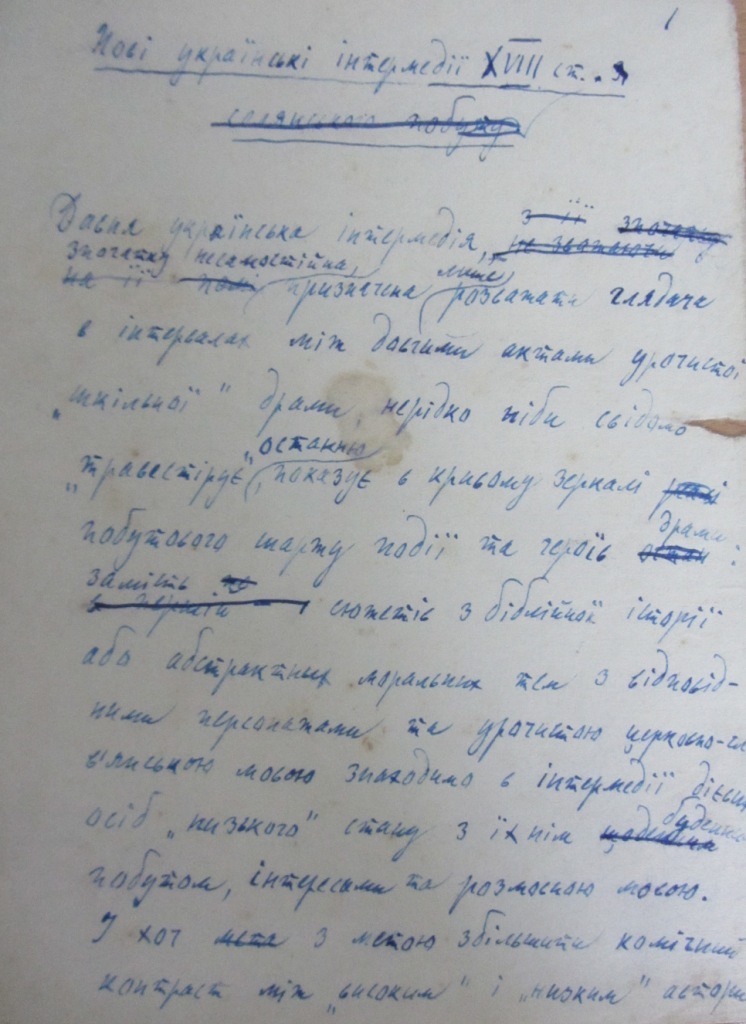 1
Нові українські інтермедії XVIII ст. з
селянського побуту
Давня українська інтермедія, з її спочатку не зважаючи
спочатку несамостійна, лише
на її призначена розважати глядача
в інтервалах між довгими актами урочистої
„шкільної" драми, нерідко ніби свідомо
останню
„травестірує", показує в кривому зеркалі
драми:
побутового шаржу події та героїв остан
замість
в першій — сюжетів з біблійної історії
або абстрактних моральних тем з відповід-
ними персонажами та урочистою церковно-сл
вʼянською мовою знаходимо в інтермедії дієвих
буденним
осіб „низького" стану з їхнім щоденним
побутом, інтересами та розмовною мовою.
І хоч мета з метою збільшити комічний
контраст між „високим" і „низким" автори